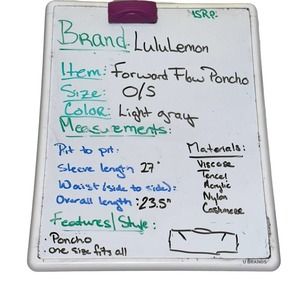 SRP:
Brand: LuluLemon
Item: Forward Flow Poncho
Size: O/S
Color: Light gray
Measurements:
Pit to pit:
Sleeve length 27"
Waist (side to side):
Overall length: 23.5"
Materials:
Viscose
Tencel
Acrylic
Nylon
Cashmere
Features/Style:
· Poncho
· one size fits all
U BRANDS